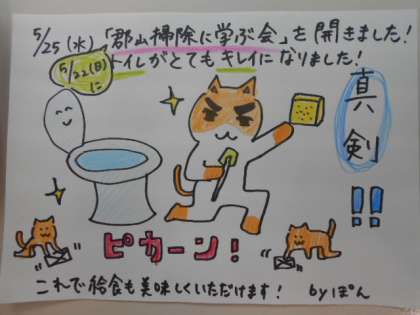 5/25(水)「郡山掃除に学ぶ会」を開きました!
5/22(日)に
トイレがとてもキレイになりました!
真剣!!
ピカーン!
これで給食も美味しくいただけます! byぽん